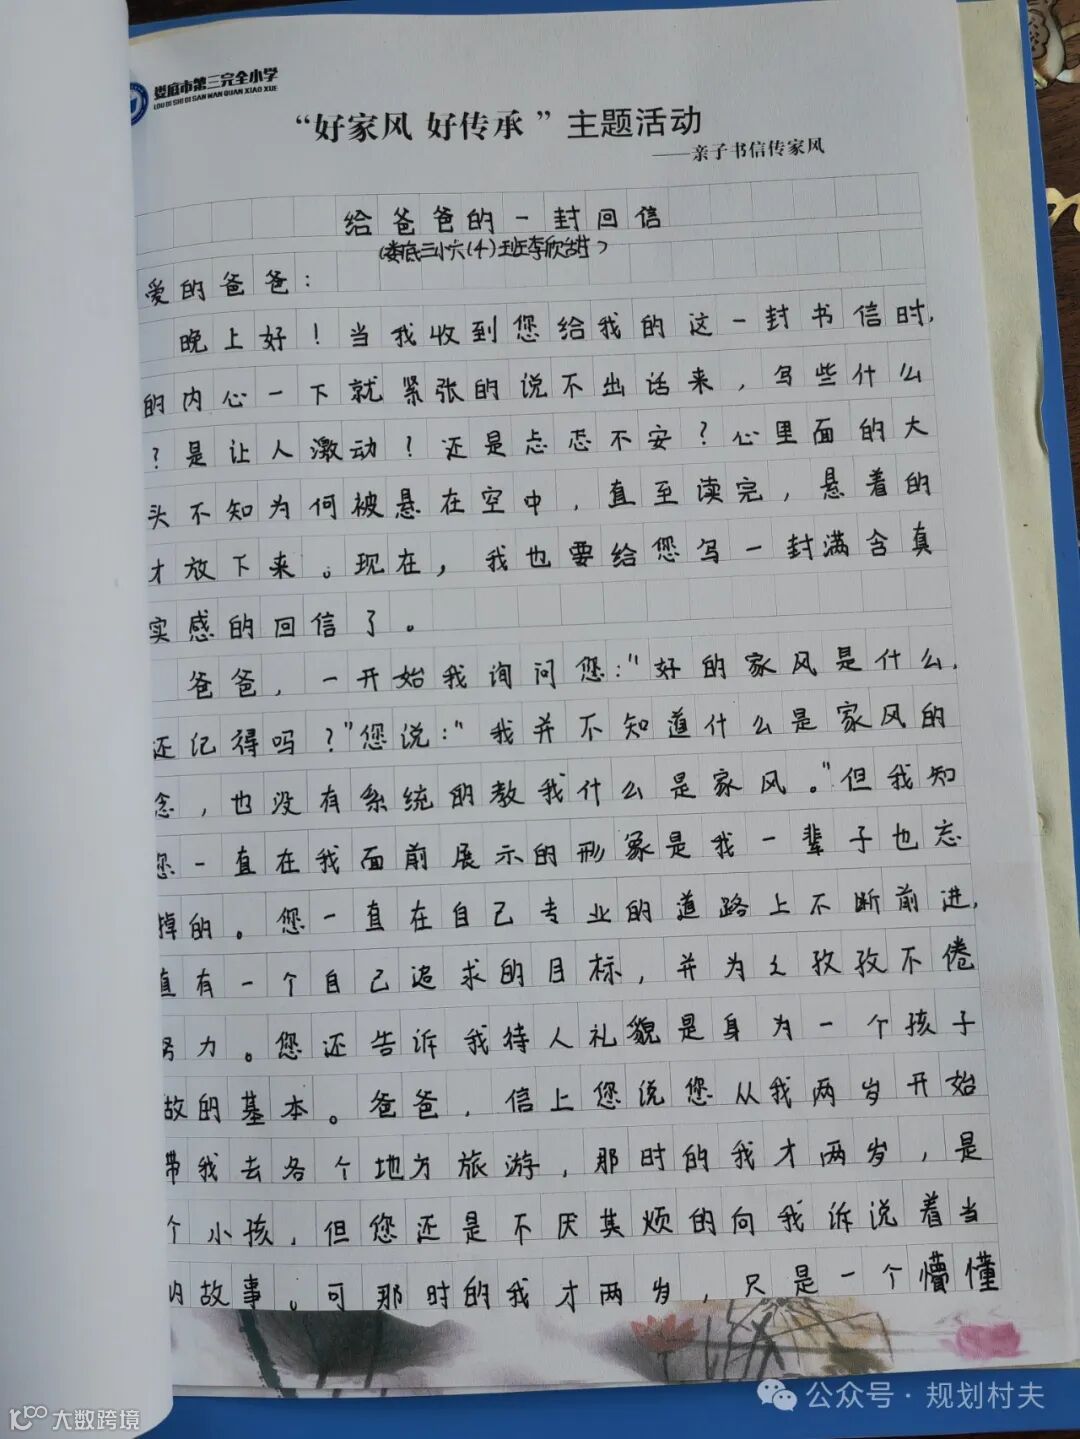 娄底市第三完全小学
LOU DI SHI DI SAN WAN QUAN XIAO XUE
“好家风 好传承”主题活动
——亲子书信传家风
给爸爸的一封回信
(娄底三小六(4)班李欣甜)
爱的爸爸：
晚上好！当我收到您给我的这一封书信时，
的内心一下就紧张的说不出话来，写些什么
？是让人激动？还是忐忑不安？心里面的大
头不知为何被悬在空中，直至读完，悬着的
才放下来。现在，我也要给您写一封满含真
实感的回信了。
爸爸，一开始我询问您：“好的家风是什么，
还记得吗？”您说：“我并不知道什么是家风的
念，也没有系统的教我什么是家风。”但我知
您一直在我面前展示的形象是我一辈子也忘
掉的。您一直在自己专业的道路上不断前进，
直有一个自己追求的目标，并为之孜孜不倦
努力。您还告诉我待人礼貌是身为一个孩子
故的基本。爸爸，信上您说您从我两岁开始
带我去各个地方旅游，那时的我才两岁，是
个小孩，但您还是不厌其烦的向我诉说着当
的故事。可那时的我才两岁，只是一个懵懂
公众号·规划村夫
大数跨境